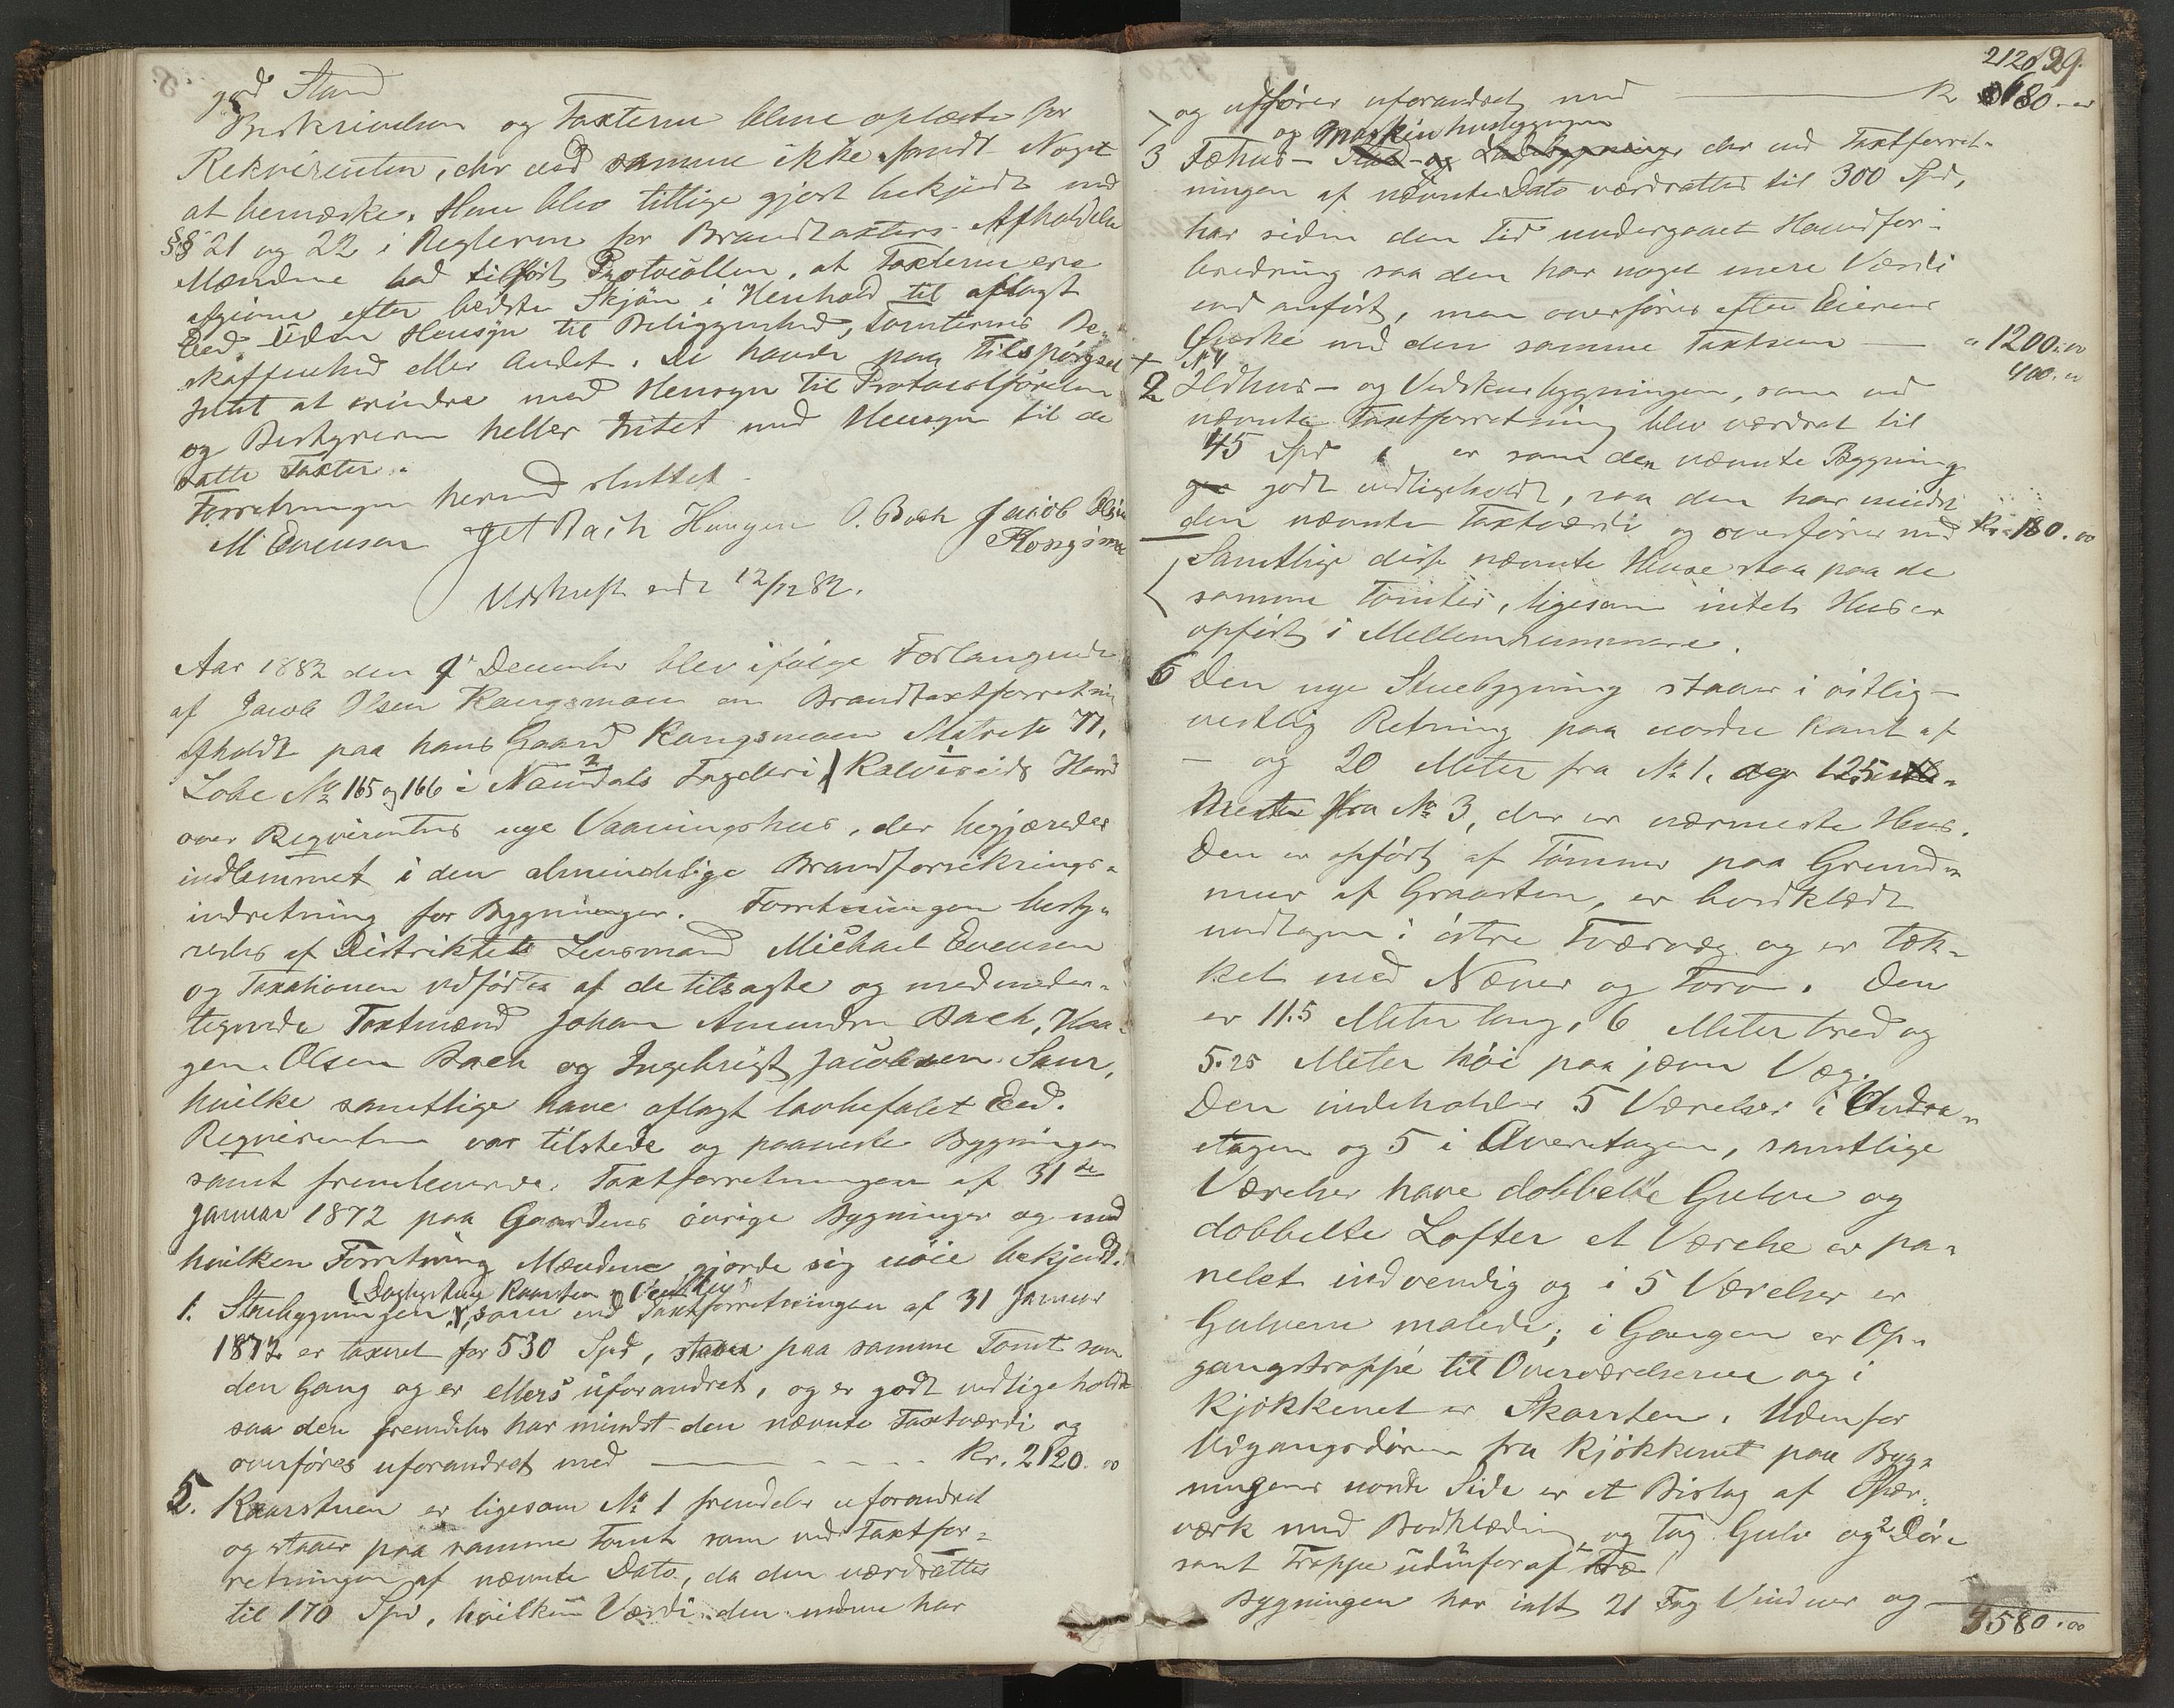 god Stand
Beskrivelsen og Taxterne bleve oplæste for
Rekvirenten, der ved samme ikke fandt Noget
at bemærke. Han blev tillige gjort bekjendt med
§§ 21 og 22 i Reglerne for Brandtaxters Afholdelse
Mændene bad tilført Protocollen, at Taxterne ere
afgivne efter bedste Skjøn i Henhold til aflagt
Eed uden Hensyn til Beliggenhed, Tomternes Be-
skaffenhed eller Andet. De havde paa Tilspørgsel
Intet at erindre med Hensyn til Protocolførelsen
og Bestyreren heller Intet med Hensyn til de
satte Taxter.
Forretningen hermed sluttet.
M Evensen Haagen O. Bach Jacob Olsen
Kongsmo
Udskrift udst 12/12 82.
Aar 1882 den 9' December blev ifølge Forlangende
af Jacob Olsen Kongsmoen en Brandtaxtforretning
afholdt paa hans Gaard Kongsmoen Matr 77,
Løbe No 165 og 166 i Namdals Fogderi, Kolvereids Herred
over Reqvirentens nye Vaaningshus, der begjæredes
indlemmet i den almindelige Brandforsikrings-
indretning for Bygninger. Forretningen besty-
redes af Distriktets Lensmand Michael Evensen
og Taxationen udførtes af de tilsagte og medunder-
tegnede Taxtmænd Johan Amundsen Bach, Haa-
gen Olsen Bach og Ingebrigt Jacobsen Saur,
hvilke samtlige have aflagt lovbefalet Eed.
Reqvirenten var tilstede og paaviste Bygningen
samt fremleverede Taxtforretningen af 31te
Januar 1872 paa Gaardens øvrige Bygninger og med
hvilken Forretning Mændene gjorde sig nøie bekjendt.
1. Stuebygningen, som ved Taxtforretningen af 31 Januar
1872 er taxeret for 530 Spd, staaer paa samme Tomt som
den Gang og er ellers uforandret, og er godt vedligeholdt
saa den fremdeles har mindst den nævnte Taxtværdi og
overføres uforandret med - - - - Kr. 2120.00
5. Kaarstuen er ligesom No 1 fremdeles uforandret
og staaer paa samme Tomt som ved Taxtfor-
retningen af nævnte Dato, da den værdsattes
til 170 Spd, hvilken Værdi den endnu har
2120 29.
og opføres uforandret med Kr 680.00
og Maskinhusbygningen
3 Fæhus- Stald- og Ladebygninge der ved Taxtforret-
ningen af nævnte Dato værdsattes til 300 Spd,
har siden den Tid undergaaet Hovedfor-
bedring saa den har noget mere Værdi
end anført, men overføres efter Eierens
Ønske med den samme Taxtsum " 1200.00
+ No 4 400.00
2 Ildhus- og Vedskurbygningen, som ved
nævnte Taxtforretning blev værdsat til
45 Spd er som den nævnte Bygning
godt vedligeholdt, saa den har mindst
den nævnte Taxtværdi og overføres med Kr. 180.00
Samtlige disse nævnte Huse staa paa de
samme Tomter, ligesom intet Hus er
opført i Mellemrummene.
6 Den nye Stuebygning staaer i østlig-
vestlig Retning paa nordre Kant af
- og 20 Meter fra No 1. og 125
Meter fra No 3, der er nærmeste Hus.
Den er opført af Tømmer paa Grund-
mur af Graasten, er bordklædt
undtagen i østre Tværvæg og er tæk-
ket med Næver og Torv. Den
er 11.5 Meter lang, 6 Meter bred og
5.25 Meter høi paa jevn Væg.
Den indeholder 5 Værelser i Undre-
etagen og 5 i Overetagen, samtlige
Værelser have dobbelte Gulve og
dobbelte Lofter et Værelse er pa-
nelet indvendig og i 5 Værelser er
Gulvene malede; i Gangen er Op-
gangstrappe til Overværelserne og i
Kjøkkenet er Skorsten. Udenfor
Udgangsdøren fra Kjøkkenet paa Byg-
ningens nordre Side er et Bislag af
værk med Bordklædning og Tag Gulv og 2 Døre
samt Trappe udenfor af Træ
Bygningen har ialt 21 Fag Vinduer og
4580.00